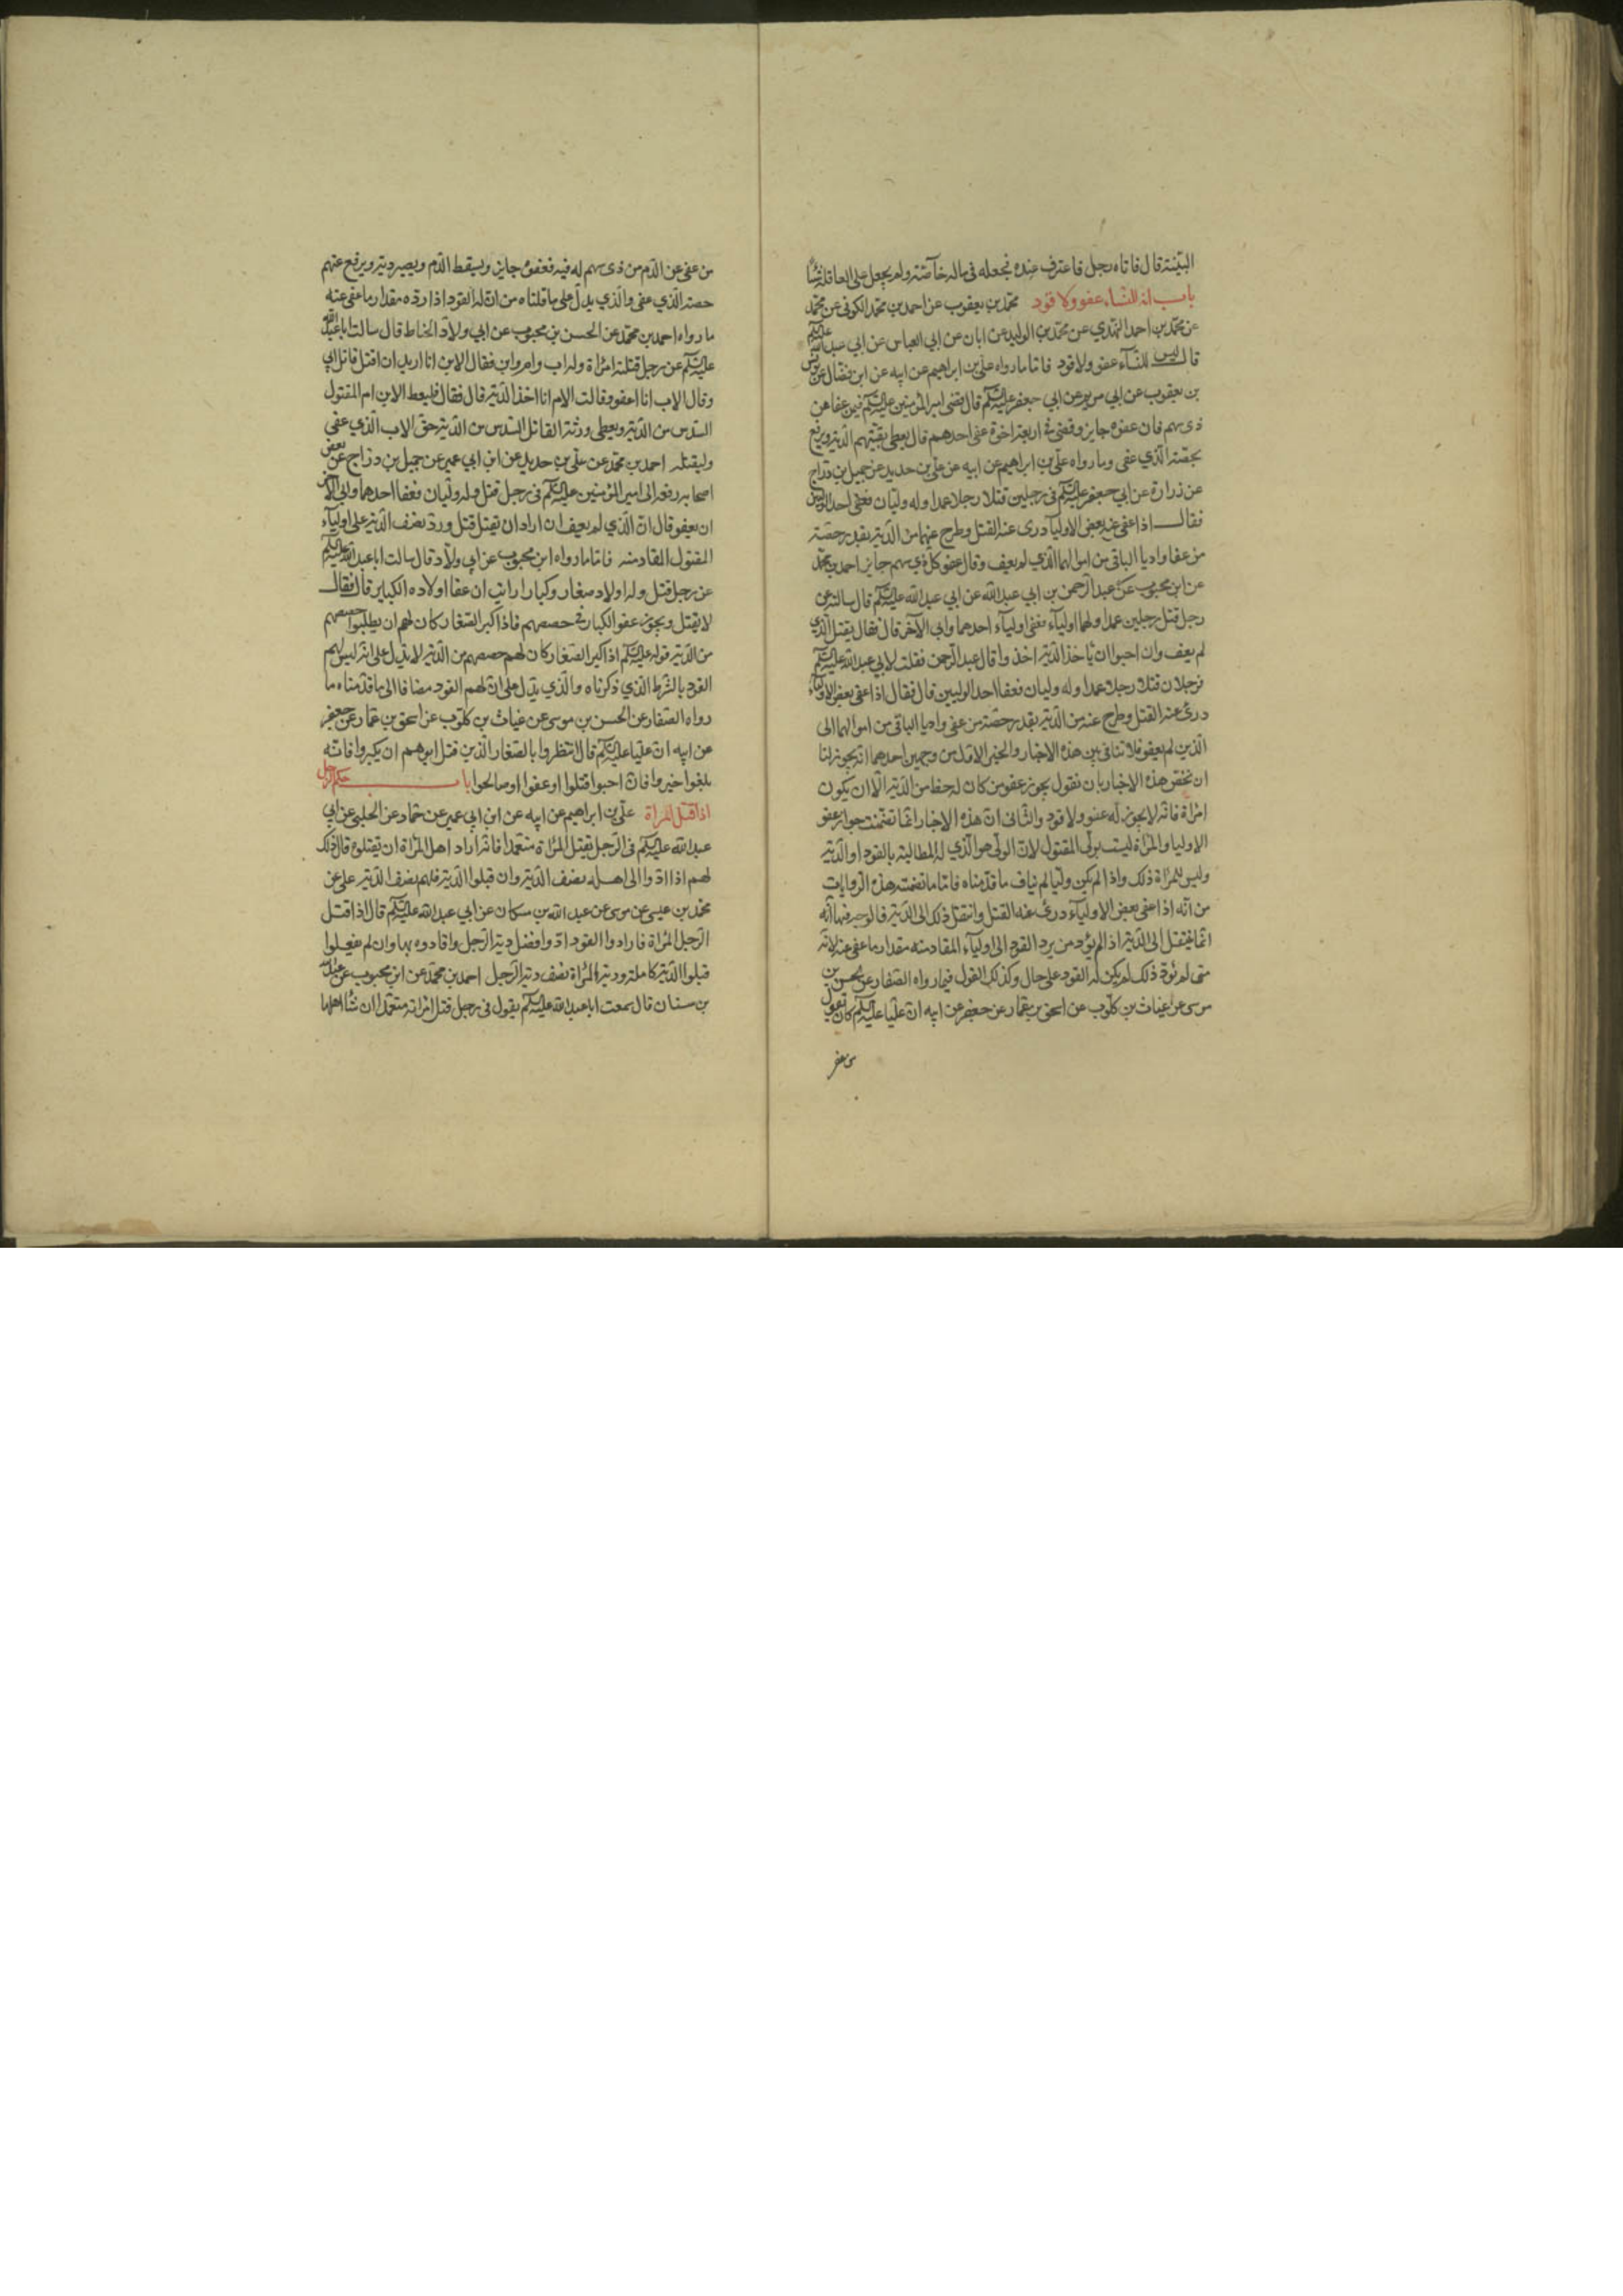 البينة قال فاتاه رجل فاعترف عنده فجعله فى ماله خاصة ولم يجعل على العاقلة شيئا
باب انه ليس للنساء عفو ولا قود محمد بن يعقوب عن احمد بن محمد الكوفى عن محمد
عن محمد بن احمد النهدي عن محمد بن الوليد عن ابان عن ابي العباس عن ابي عبد الله عليه السلم
قال ليس للنساء عفو ولا قود فاما ما رواه علي بن ابراهيم عن ابيه عن ابن فضال عن يونس
بن يعقوب عن ابي مريم عن ابي جعفر عليه السلم قال قضى امير المؤمنين عليه السلم فيمن عفا من
ذى سهم فان عفوه جايز وقضى فى اربعة اخوة عفى احدهم قال يعطى بقيتهم الدية ويرفع
بحصته الذي عفى وما رواه علي بن ابراهيم عن ابيه عن علي بن حديد عن جميل بن دراج
عن زرارة عن ابي جعفر عليه السلم فى رجلين قتلا رجلا عمدا وله وليان فعفى احد الوليين
فقال اذا عفى عنه بعض الاوليا درى عنه القتل وطرح عنهما من الدية بقدر حصة
من عفا واديا الباقى من اموالهما الذي لم يعف وقال عفو كل ذي سهم جايز احمد بن محمد
عن ابن محبوب عن عبد الرحمن بن ابي عبد الله عن ابي عبد الله عليه السلم قال سالته عن
رجل قتل رجلين عمدا ولهما اولياء فعفى اولياء احدهما وابى الآخر قال فقال يقتل الذي
لم يعف وان احبوا ان ياخذ الدية اخذوا قال عبد الرحمن فقلت لابي عبد الله عليه السلم
فرجلان قتلا رجلا عمدا وله وليان فعفا احد الوليين قال فقال اذا عفى بعض الاولياء
درئ عنه القتل وطرح عنه من الدية بقدر حصة من عفى واديا الباقى من اموالهما الى
الذين لم يعفو فلا تنافى بين هذه الاخبار والخبر الاول من وجهين احدهما انه يجوز لنا
ان نخص هذه الاخبار بان نقول يجوز عفو من كان له حظا من الدية الا ان يكون
امراة فانه لا يجوز له عفو ولا قود والثانى ان هذه الاخبار انما تضمنت جواز عفو
الاوليا والمراة ليست بولى المقتول لان الولى هو الذي له المطالبة بالقود او الدية
وليس للمراة ذلك واذا لم يكن وليا لم يناف ما قدمناه فاما ما تضمنته هذه الروايات
من انه اذا عفى بعض الاولياء درئ عنه القتل وانتقل ذلك الى الدية فالوجه فيها انه
انما ينتقل الى الدية اذا لم يؤد من يرد القود الى اولياء المقاد منه مقدار ما عفى عنه لانه
متى لم يؤد ذلك لم يكن له القود على حال وكذلك القول فيما رواه الصفار عن الحسن بن
موسى عن غياث بن كلوب عن اسحق بن عمار عن جعفر عن ابيه ان عليا عليه السلم كان يقول
من عفى
من عفى عن الدم من ذى سهم له فيه فعفوه جايز ويسقط الدم ويصير دية ويرفع عنهم
حصة الذي عفى والذي يدل على ما قلناه من ان له القود اذا رده مقدار ما عفى عنه
ما رواه احمد بن محمد عن الحسن بن محبوب عن ابي ولاد الحناط قال سالت ابا عبد الله
عليه السلم عن رجل قتلته امراة وله اب وام وابن فقال الابن انا اريد ان اقتل قاتل ابي
وقال الاب انا اعفو وقالت الام انا اخذ الدية قال فقال فليعط الابن ام المقتول
السدس من الدية ويعطى ورثة القاتل السدس من الدية حق الاب الذي عفى
وليقتله احمد بن محمد عن علي بن حديد عن ابن ابي عمير عن جميل بن دراج عن بعض
اصحابه رفعه الى امير المؤمنين عليه السلم فى رجل قتل وله وليان فعفا احدهما وابى الآخر
ان يعفو قال ان الذي لم يعف ان اراد ان يقتل قتل ورد نصف الدية على اولياء
المقتول المقاد منه فاما ما رواه ابن محبوب عن ابي ولاد قال سالت ابا عبد الله عليه السلم
عن رجل قتل وله اولاد صغار وكبار ارايت ان عفا اولاده الكبار قال فقال
لا يقتل ويجوز عفو الكبار فى حصصهم فاذا كبر الصغار كان لهم ان يطلبوا حصصهم
من الدية قوله عليه السلم اذا كبر الصغار كان لهم حصصهم من الدية لا يدل على انه ليس لهم
القود بالشرط الذي ذكرناه والذي يدل على ان لهم القود مضافا الى ما قدمناه ما
رواه الصفار عن الحسن بن موسى عن غياث بن كلوب عن اسحق بن عمار عن جعفر
عن ابيه ان عليا عليه السلم قال انتظروا بالصغار الذين قتل ابوهم ان يكبروا فاذا
بلغوا خيروا فان احبوا قتلوا او عفوا او صالحوا باب حكم الرجل
اذا قتل امراة علي بن ابراهيم عن ابيه عن ابن ابي عمير عن حماد عن الحلبى عن ابي
عبد الله عليه السلم فى الرجل يقتل المراة متعمدا فاراد اهل المراة ان يقتلوه قال ذلك
لهم اذا ادوا الى اهله نصف الدية وان قبلوا الدية فلهم نصف الدية علي عن
محمد بن عيسى عن موسى عن عبد الله بن مسكان عن ابي عبد الله عليه السلم قال اذا قتل
الرجل المراة فارادوا القود ادوا فضل دية الرجل واقادوه بها وان لم يفعلوا
قبلوا الدية كاملة ودية المراة نصف دية الرجل احمد بن محمد عن ابن محبوب عن عبد الله
بن سنان قال سمعت ابا عبد الله عليه السلم يقول فى رجل قتل امراته متعمدا ان شاء اهلها